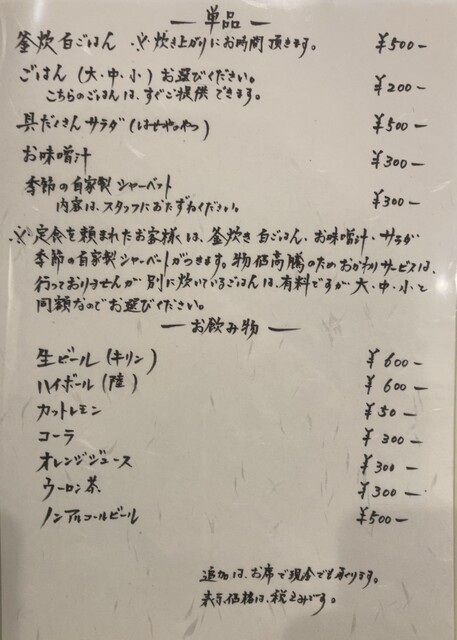 ー 単品 ー
釜炊 白ごはん ※ 炊き上がりにお時間頂きます。 ¥500-
ごはん (大・中・小) お選びください。 ¥200-
こちらのごはんは、すぐご提供できます。
具だくさんサラダ ¥500-
お味噌汁 ¥300-
季節の自家製シャーベット ¥300-
内容は、スタッフにおたずねください。
※定食を頼まれたお客様は、釜炊き白ごはん・お味噌汁・サラダ
季節の自家製シャーベットがつきます。物価高騰のためおかわりサービスは、
行っておりませんが別に炊いているごはんは、有料ですが大・中・小と
同額なのでお選びください。
ー お飲み物 ー
生ビール (キリン) ¥600-
ハイボール (陸) ¥600-
カットレモン ¥50-
コーラ ¥300-
オレンジジュース ¥300-
ウーロン茶 ¥300-
ノンアルコールビール ¥500-
追加は、お席で現金でも承ります。
表示価格は、税込みです。